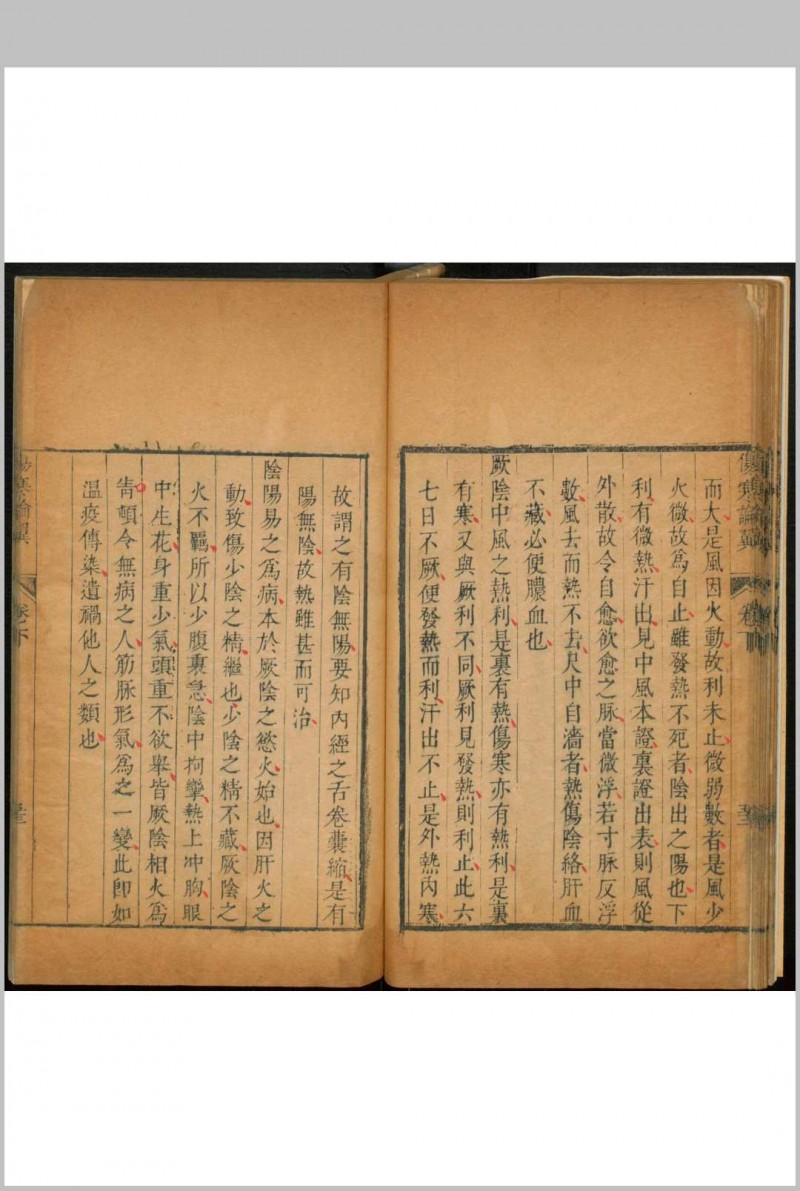 傷寒論翼 卷下
而大是風因火動故利未止微弱數者是風少
火微故爲自止雖發熱不死者陰出之陽也下
利有微熱汗出見中風本證裏證出表則風從
外散故令自愈欲愈之脉當微浮若寸脉反浮
數風去而熱不去尺中自濇者熱傷陰絡肝血
不藏必便膿血也
厥陰中風之熱利是裏有熱傷寒亦有熱利是裏
有寒又與厥利不同厥利見發熱則利止此六
七日不厥便發熱而利汗出不止是外熱內寒
故謂之有陰無陽要知內經之舌卷囊縮是有
陽無陰故熱雖甚而可治
陰陽易之爲病本於厥陰之慾火始也因肝火之
動致傷少陰之精繼也少陰之精不藏厥陰之
火不羈所以少腹裏急陰中拘攣熱上冲胸眼
中生花身重少氣頭重不欲舉皆厥陰相火爲
眚頓令無病之人筋脉形氣爲之一變此卽如
溫疫傳染遺禍他人之類也
傷寒論翼 卷下